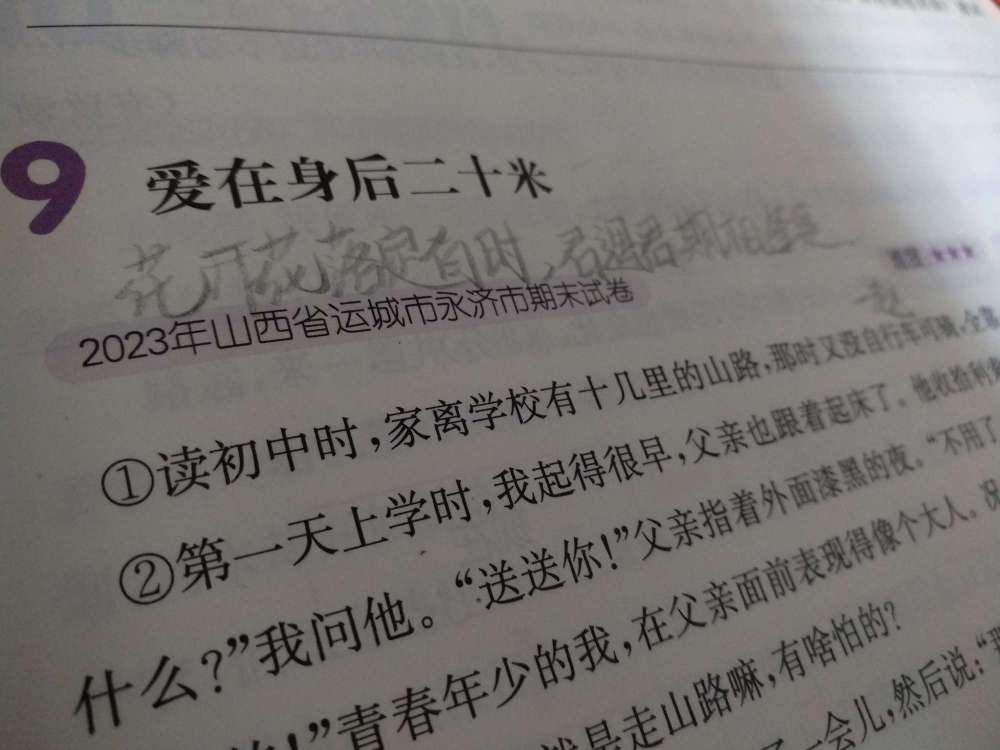 9 爱在身后二十米
花开花落定有时，君遇君期相逢是
难度:★★★
2023年山西省运城市永济市期末试卷
①读初中时，家离学校有十几里的山路，那时又没自行车可骑，全靠
②第一天上学时，我起得很早，父亲也跟着起床了。他收拾利
什么?”我问他。“送送你!”父亲指着外面漆黑的夜。“不用了
!”青春年少的我，在父亲面前表现得像个大人。况
是走山路嘛，有啥怕的?
一会儿，然后说:“